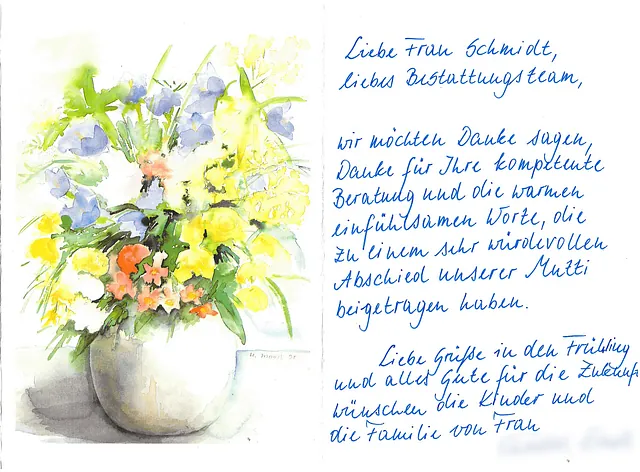 Liebe Frau Schmidt,
liebes Bestattungsteam,
wir möchten Danke sagen,
Danke für Ihre kompetente
Beratung und die warmen
einfühlsamen Worte, die
zu einem sehr würdevollen
Abschied unserer Mutti
beigetragen haben.
Liebe Grüße in den Frühling
und alles Gute für die Zukunft
wünschen die Kinder und
die Familie von Frau